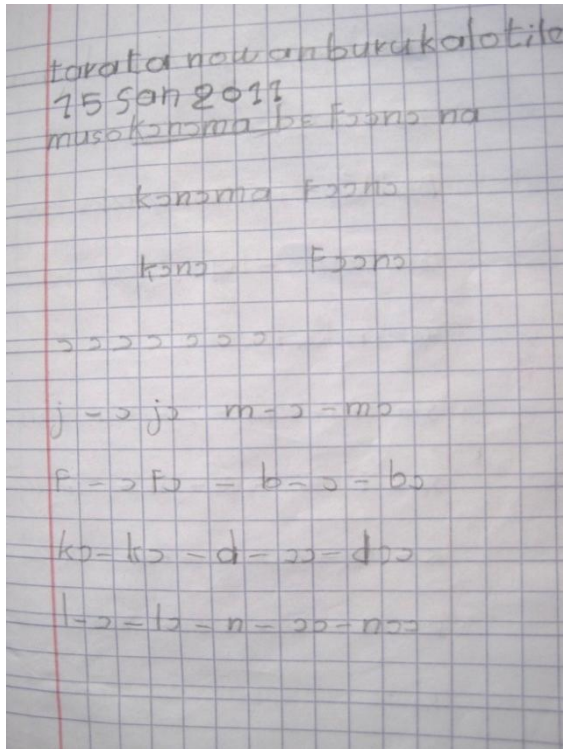 tarata nowanburukalo tile
15 san 2011
muso kɔnɔma bɛ Fɔɔnɔ na
kɔnɔma Fɔɔnɔ
kɔnɔ Fɔɔnɔ
ɔ ɔ ɔ ɔ ɔ ɔ ɔ ɔ
j - ɔ jɔ m - ɔ - mɔ
F - ɔ Fɔ - b - ɔ - bɔ
kɔ - kɔ - d - ɔɔ - dɔɔ
l - ɔ - lɔ - n - ɔɔ - nɔɔ